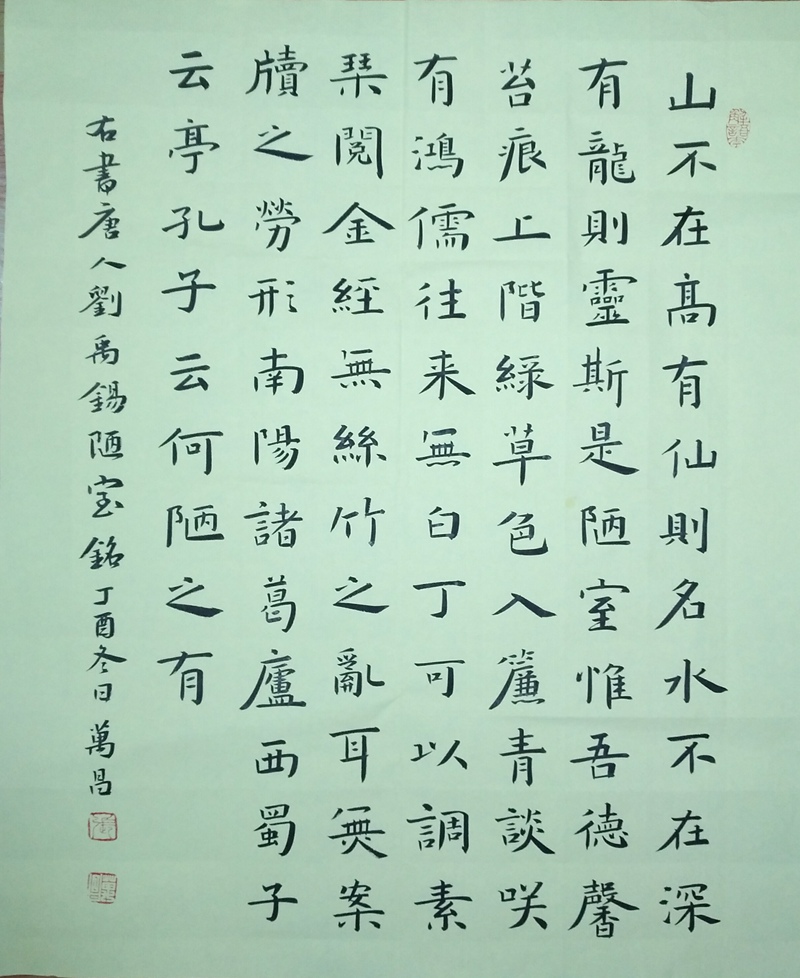 山不在高有仙則名水不在深
有龍則靈斯是陋室惟吾德馨
苔痕上階綠草色入簾青談咲
有鴻儒往来無白丁可以調素
琹閱金經無絲竹之亂耳無案
牘之勞形南陽諸葛廬西蜀子
云亭孔子云何陋之有
右書唐人劉禹錫陋室銘丁酉冬日萬昌